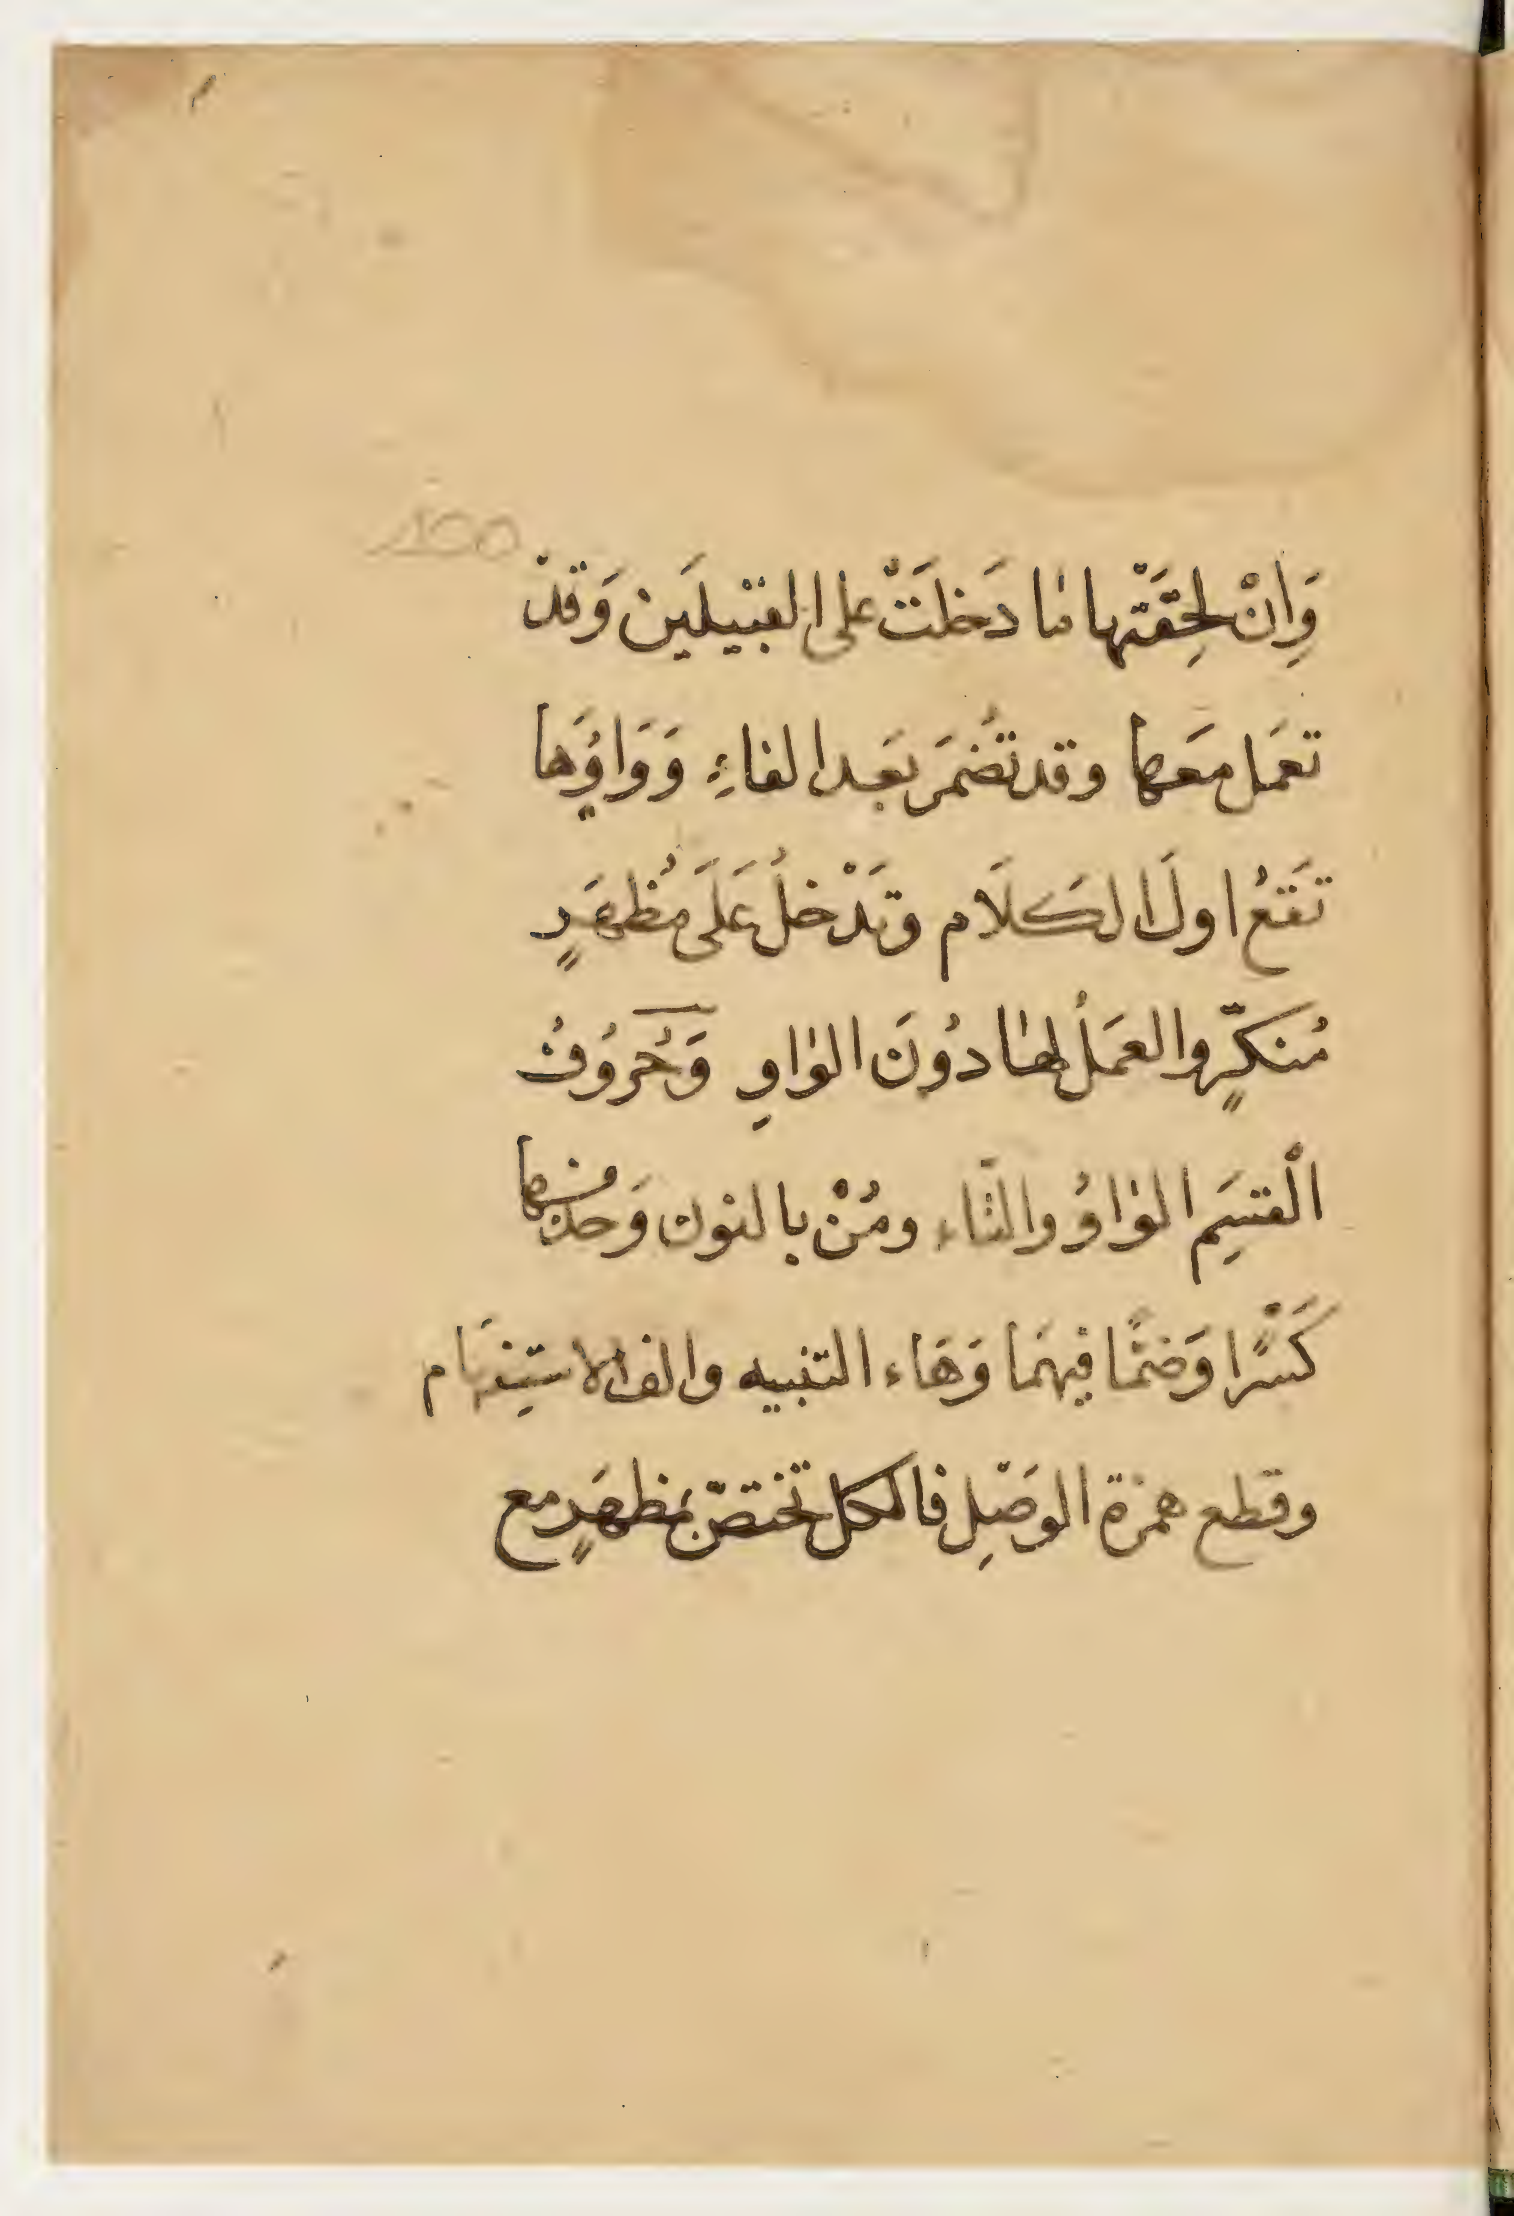 ١٥٥
وَاِنْ لَحِقَتْهَا مَا دَخَلَتْ على القبيلَين وَقدْ
تعمَل معَها وقد تُضمَر بَعدا لفاءِ وَوَاوُها
تقَعُ اولَ الكلَام وتدْخلُ عَلَى مُظهَرٍ
مُنكّرٍ والعمَلُ لها دوُنَ الوٰاوِ وَحُروُفُ
الْقسَمِ الوٰاوُ والتّاء ومُنْ بالنون وَحدَها
كَسْرًا وَضمًّا فيهمَا وَهَاء التنبيه والف الاستِفهَام
وقطع همزة الوَصْلِ فالكل تختصّ بمظهَرٍ مع